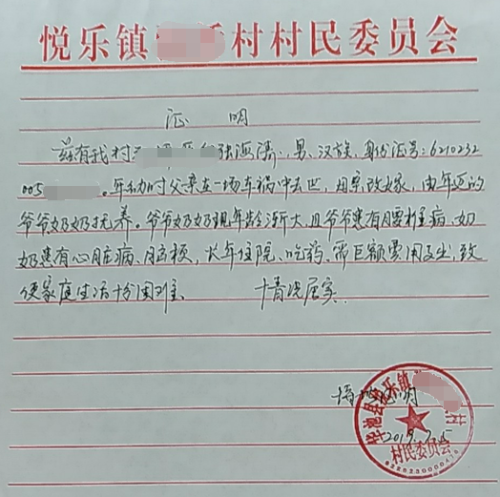 悦乐镇 村村民委员会
证明
兹有我村 张海涛，男、汉族，身份证号：6210232
005 。年幼时父亲在一场车祸中去世，母亲改嫁，由年迈的
爷爷奶奶抚养。爷爷奶奶现年龄渐大，且爷爷患有腰椎病，奶
奶患有心脏病、脑梗，长年住院、吃药，需巨额费用支出，致
使家庭生活十分困难。 情况属实
情况
华池县悦乐镇 村
村民委员会